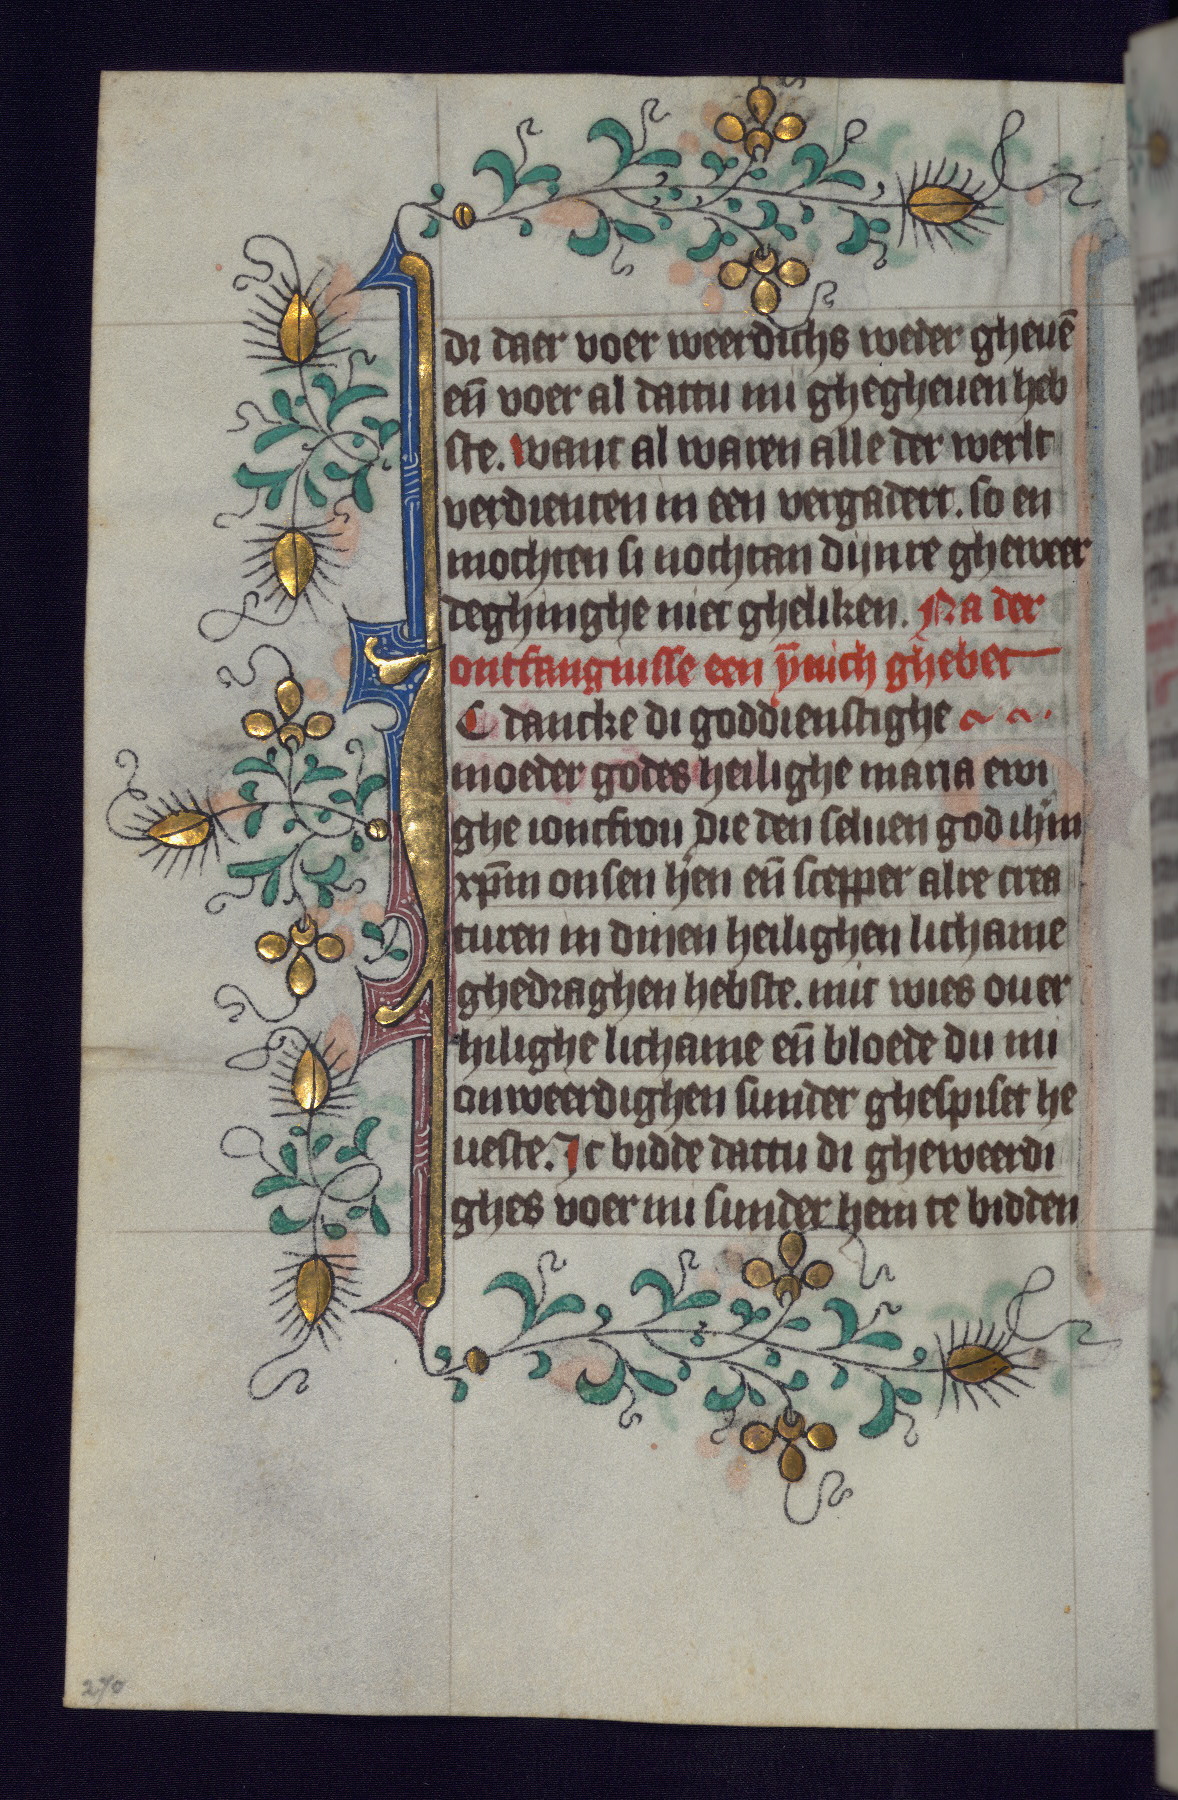 di daer voer weerdichs weder gheuē
eñ voer al dattu mi ghegheuen heb
ste. want al waren alle der werlt
verdienten in een vergadert. so en
mochten si nochtan dijnre gheweer
deghinghe niet gheliken. Na der
ontfangnisse een ÿnich ghebet
C dancke di goddienstighe
moeder godes heilighe maria ewi
ghe ioncfrou die den seluen god ihm̄
xpm̄ onsen hēn eñ scepper alre crea
turen in dinen heilighen lichame
ghedraghen hebste. mit wies ouer
hilighe lichame eñ bloede du mi
onweerdighen sunder ghespiset he
ueste. Ic bidde dattu di gheweerdi
ghes voer mi sunder hem te bidden
270